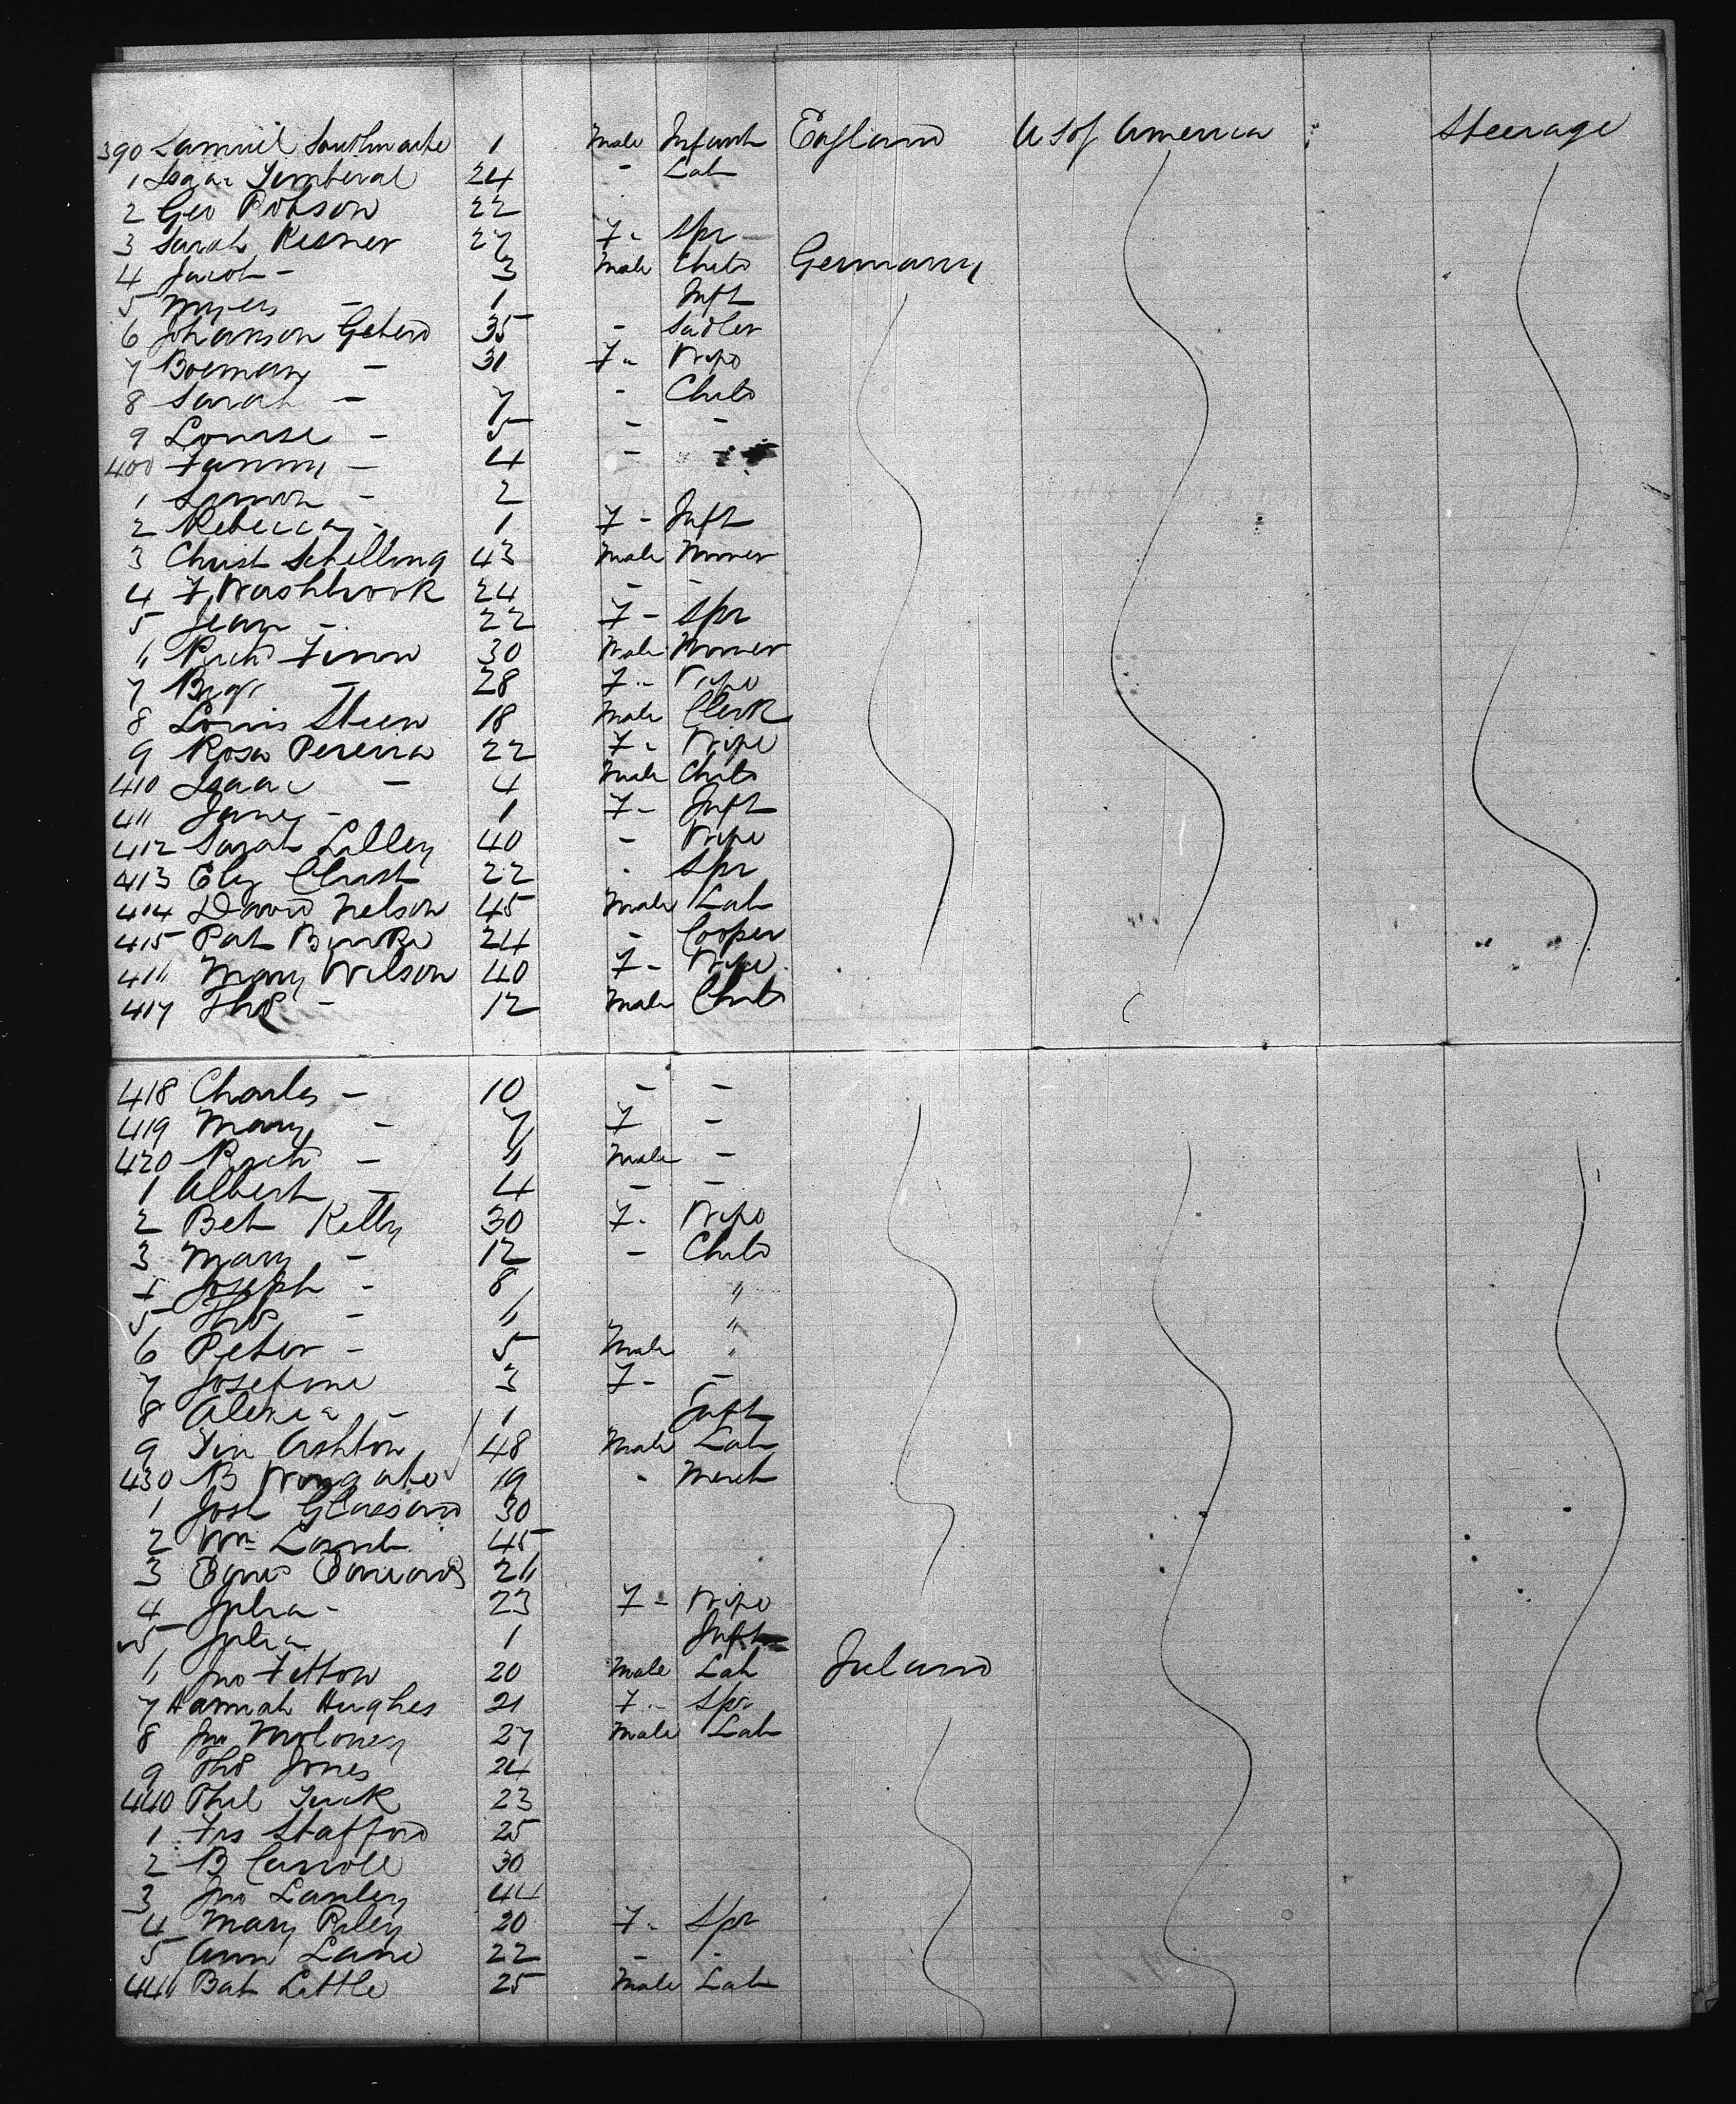 390 Samuel Southwaite 1 Male Infant England U S of America Steerage
1 Isaac Timberal 24 - Lab
2 Geo Robson 22
3 Sarah Kesner 27 F - Spr
4 Jacob - 3 Male Child Germany
5 Myers - 1 Inft
6 Johanson Geherd 35 - Sadler
7 Boeman - 31 F - Wife
8 Sarah - 7 - Child
9 Louise - 5 - -
400 Fanny - 4 - -
1 2
2 Rebecca - 1 F - Inft
3 Christ Schelling 43 Male Miner
4 F. Washbrook 24 - -
5 Jean - 22 F - Spr
6 Richd Finn 30 Male Miner
7 - 28 F - Wife
8 Louis Stein 18 Male Clerk
9 Rosa Pereira 22 F - Wife
410 Isaac - 4 Male Child
411 Jane - 1 F - Inft
412 Sarah Lilley 40 - Wife
413 Eliz Christ 22 - Spr
414 David Nelson 45 Male Lab
415 Pat Burke 24 - Cooper
416 Mary Wilson 40 F - Wife
417 Thos - 12 Male Child
418 Charles - 10 - -
419 Mary - 7 F -
420 Richd - 6 Male -
1 Albert - 4 - -
2 Bet Kelly 30 F - Wife
3 Mary - 12 - Child
4 Joseph - 8 "
5 Thos - 6 "
6 Peter - 5 Male "
7 Josefine 3 F - -
8 - 1 Inft
9 Ashton 48 Male Lab
430 B Wingate 19 - Merch
1 Josh 30
2 Wm Lamb 45
3 Edwards 26
4 Julia - 23 F - Wife
5 Julia 1 Inft
6 Jno Fitton 20 Male Lab Ireland
7 Hannah Hughes 21 F - Spr
8 Jno Moloney 27 Male Lab
9 Thos Jones 24
440 Phil Tuck 23
1 Frs Stafford 25
2 B Carroll 30
3 Jno Lanley 44
4 Mary Riley 20 F - Spr
5 Ann Lane 22 - -
446 Bat Little 25 Male Lab